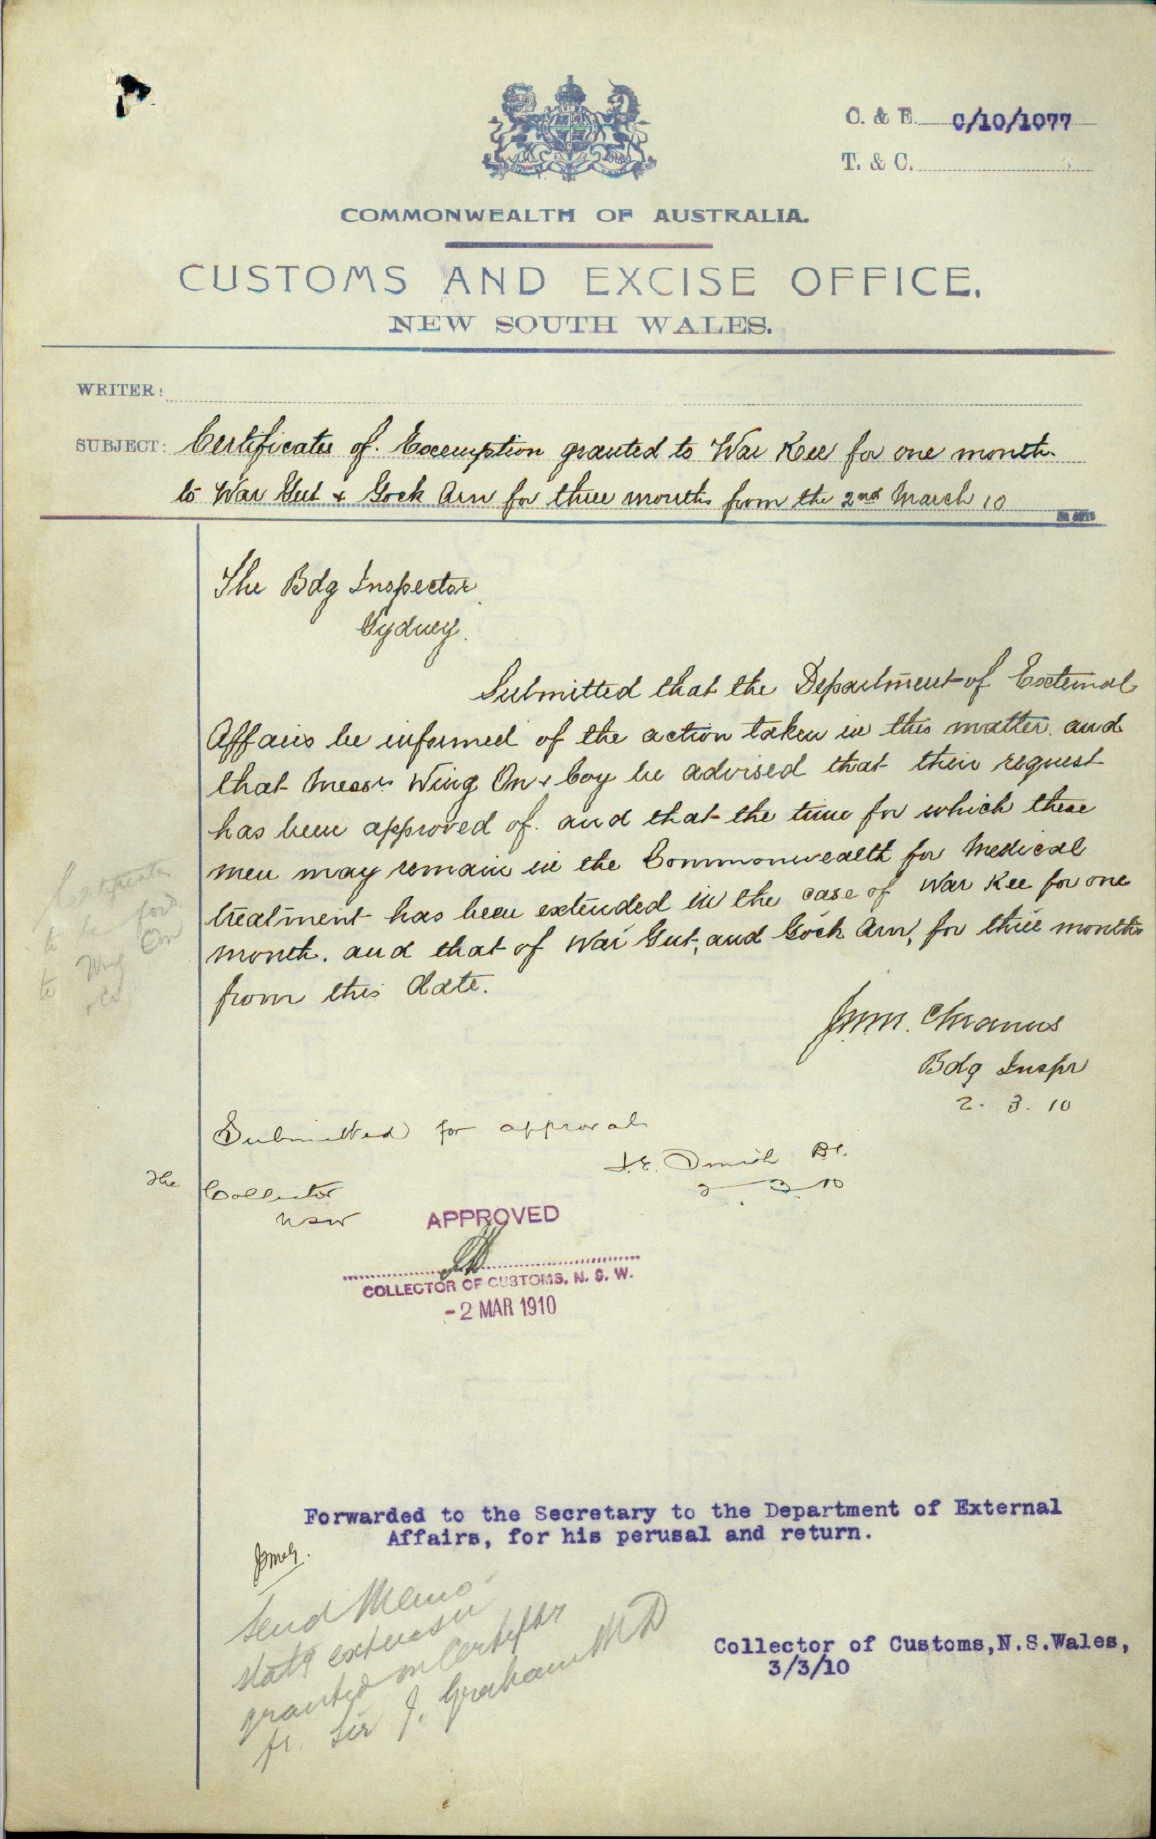 C. & E. C/10/1077
T. & C.
COMMONWEALTH OF AUSTRALIA.
CUSTOMS AND EXCISE OFFICE,
NEW SOUTH WALES.
WRITER:
SUBJECT: Certificates of Exemption granted to War Kee for one month
to War Gut & Gock Arn for three months from the 2nd March 10
The Bdg Inspector
Sydney.
Submitted that the Department of External
Affairs be informed of the action taken in this matter. and
that Messrs Wing On & Coy be advised that their request
has been approved of. and that the time for which these
men may remain in the Commonwealth for Medical
treatment has been extended in the case of War Kee for one
month. and that of War Gut, and Gock Arn, for three months
from this date.
Bdg Inspr
2. 3. 10
Submitted for approval
2 3 10
The Collector
NSW
APPROVED
COLLECTOR OF CUSTOMS, N. S. W.
-2 MAR 1910
Certificates
to be ford
to Wing On
& Co
Forwarded to the Secretary to the Department of External
Affairs, for his perusal and return.
Send Memo
statg extension
granted on Certifs
fr. Sir J. Graham MD
Collector of Customs,N.S.Wales,
3/3/10